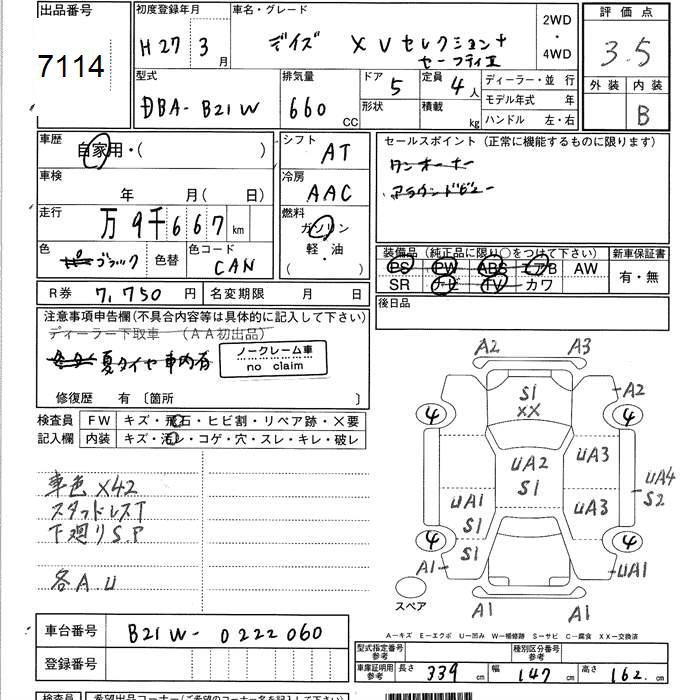 出品番号
7114
初度登録年月
H27 3 月
車名・グレード
デイズ XVセレクション+
セーフティII
2WD
・
4WD
評価点
3.5
外装 内装
B
型式
DBA-B21W
排気量
660 CC
ドア 5
形状
定員 4 人
積載 kg
ディーラー・並行
モデル年式 年
ハンドル 左・右
車歴
自家用・( )
車検
年 月( 日)
走行
万9千667 km
色
ブラック
色替
色コード
CAN
シフト
AT
冷房
AAC
燃料
ガソリン
軽・油
( )
セールスポイント(正常に機能するものに限ります)
ワンオーナー
アラウンドビュー
装備品(純正品に限り○をつけて下さい)
PS PW ABS エアB AW
SR ナビ TV カワ
新車保証書
有・無
後日品
R券 7,750 円
名変期限 月 日
注意事項申告欄(不具合内容等は具体的に記入して下さい)
ディーラー下取車 (AA初出品)
夏タイヤ車内有
ノークレーム車
no claim
修復歴 有〔箇所 〕
検査員
記入欄
FW キズ・飛石・ヒビ割・リペア跡・×要
内装 キズ・汚レ・コゲ・穴・スレ・キレ・破レ
車色X42
スタッドレスT
下廻りS.P
各A.U
A2 A3
S1
XX
A2
4 4
UA2
S1
UA3
UA3
UA4
S2
UA1
S1
S1
4 4
A1 UA1
A1 A1
スペア
A-キズ E-エクボ U-凹み W-補修跡 S-サビ C-腐食 XX-交換済
車台番号 B21W-0222060
登録番号
型式指定番号
参考
種別区分番号
参考
車庫証明用
参考
長さ 339 cm 幅 147 cm 高さ 162 cm
検査員 希望出品コーナー(ご希望のコーナー名を記入して下さい)